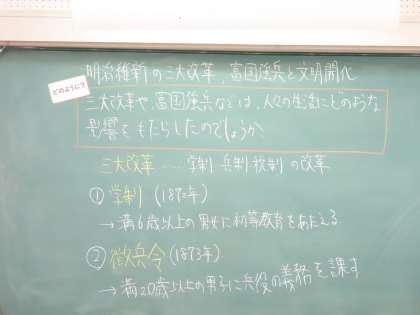 明治維新の三大改革、富国強兵と文明開化
どのように?
三大改革や、富国強兵などは、人々の生活にどのような
影響をもたらしたのでしょうか
三大改革……学制・兵制・税制の改革
① 学制 (1872年)
→ 満6歳以上の男女に初等教育をあたえる
② 徴兵令 (1873年)
→ 満20歳以上の男子に兵役の義務を課す